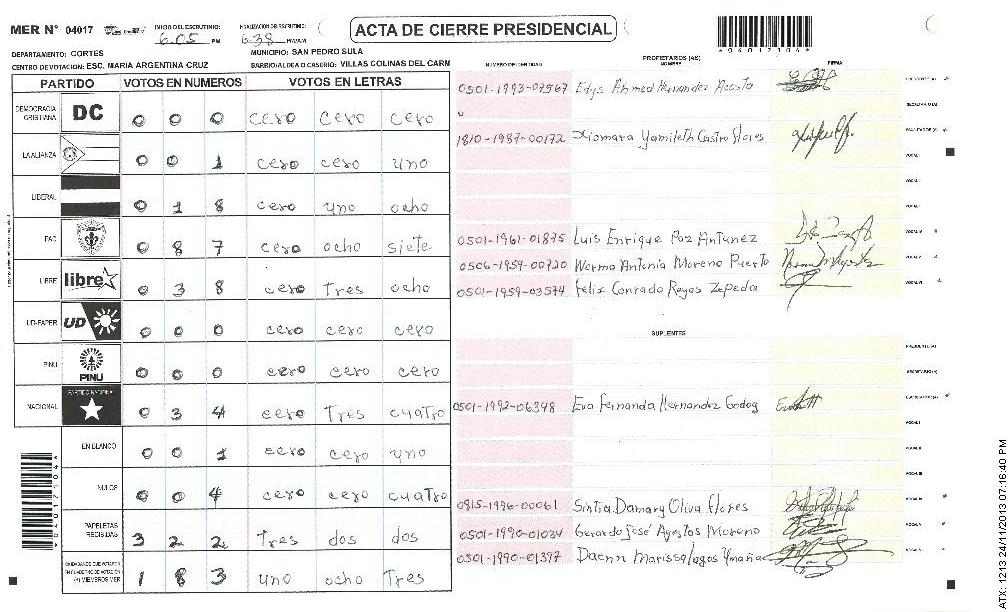 MER N° 04017
INICIO DEL ESCRUTINIO:
6:05 PM
FINALIZACION DEL ESCRUTINIO:
6:38 PM/AM
ACTA DE CIERRE PRESIDENCIAL
DEPARTAMENTO: CORTES
MUNICIPIO: SAN PEDRO SULA
CENTRO DE VOTACION: ESC. MARIA ARGENTINA CRUZ
BARRIO/ALDEA O CASERIO: VILLAS COLINAS DEL CARM
PARTIDO VOTOS EN NUMEROS VOTOS EN LETRAS
DEMOCRACIA CRISTIANA DC 0 0 0 cero cero cero
LA ALIANZA 0 0 1 cero cero uno
LIBERAL 0 1 8 cero uno ocho
PAC 0 8 7 cero ocho siete
LIBRE libre 0 3 8 cero tres ocho
UD-FAPER UD 0 0 0 cero cero cero
PINU PINU 0 0 0 cero cero cero
NACIONAL PARTIDO NACIONAL 0 3 4 cero Tres cuatro
EN BLANCO 0 0 1 cero cero uno
NULOS 0 0 4 cero cero cuatro
PAPELETAS RECIBIDAS 3 2 2 tres dos dos
CIUDADANOS QUE VOTARON EN CUADERNO DE VOTACION (+) MIEMBROS MER 1 8 3 uno ocho Tres
NUMERO DE IDENTIDAD
PROPIETARIOS (AS)
NOMBRE
FIRMA
0501-1993-07567 Edys Ahmed Hernandez Acosta PRESIDENTE (A)
SECRETARIO (A)
1810-1987-00172 Xiomara Yamileth Castro flores ESCRUTADOR (A)
VOCAL I
0501-1961-01875 Luis Enrique Paz Antunez VOCAL IV
0506-1959-00720 Norma Antonia Moreno Puerto VOCAL V
0501-1959-03574 felix Conrado Reyes Zepeda VOCAL VI
SUPLENTES
PRESIDENTE (A)
SECRETARIO (A)
0501-1992-06398 Eva Fernanda Hernandez Godoy ESCRUTADOR (A)
VOCAL I
VOCAL II
VOCAL III
0815-1996-00061 Sintia Damary Oliva flores
0501-1990-01034 Gerardo José Agostos Moreno VOCAL V
0501-1990-01397 Daenn Marissa lagos
*04017104*
ATX: 1213 24/11/2013 07:16:40 PM